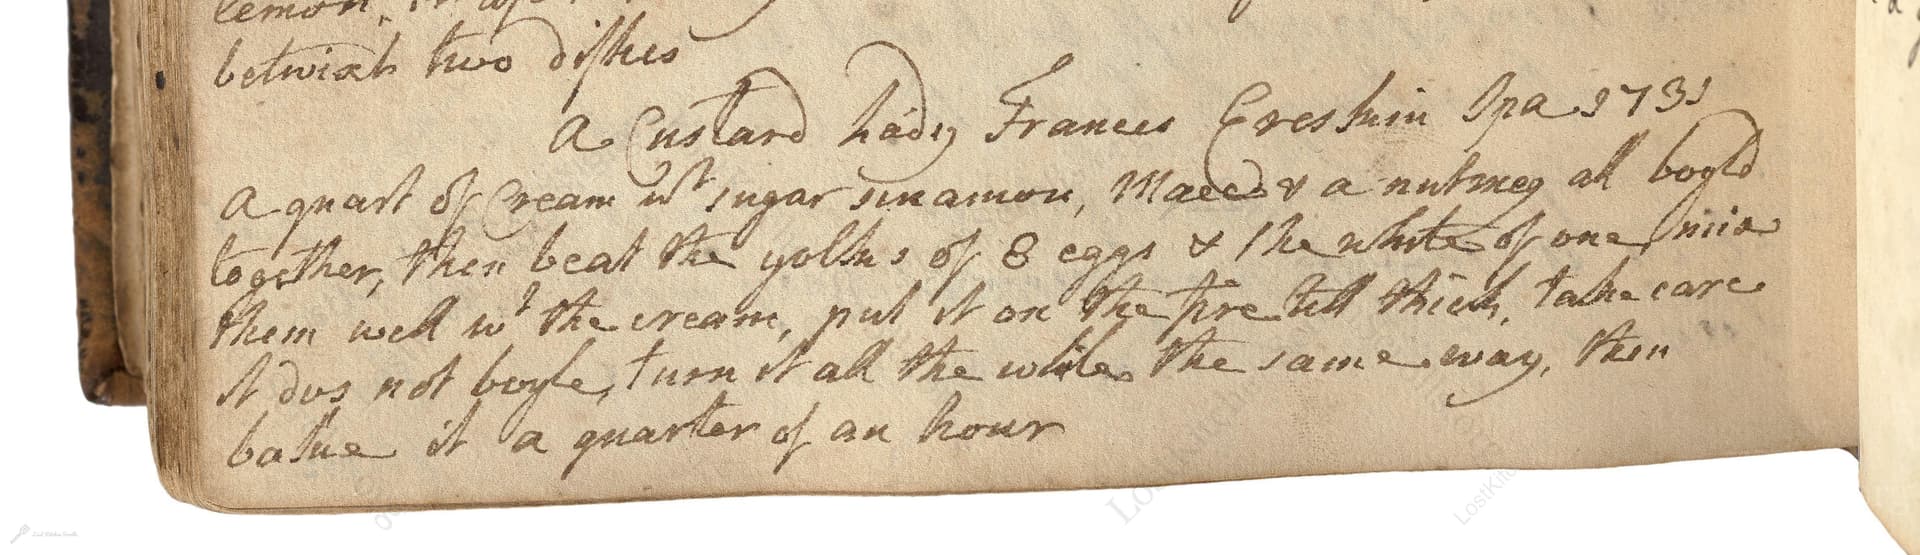 lemon,
betwixt two dishes
A Custard Lady Frances Ereskin Spa 1731
A quart of Cream wt sugar sinamon, Maces & a nutmeg all boyld
together, then beat the yolks of 8 eggs & the white of one, mix
them well wt the cream, put it on the fire till thick, take care
it dos not boyle, turn it all the while the same way, then
bake it a quarter of an hour